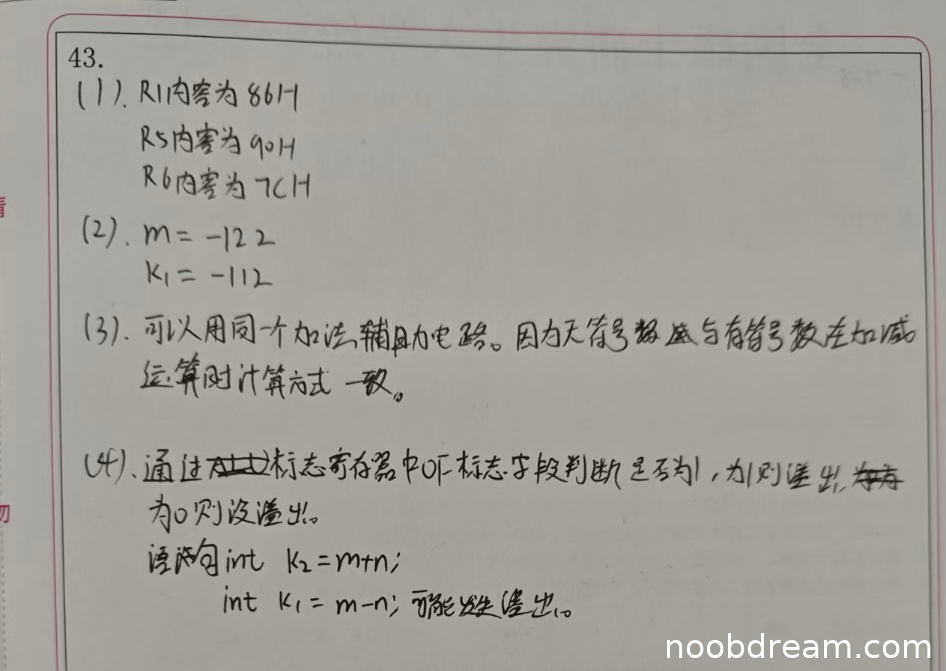 43.
(1). R1内容为 86H
R5内容为 90H
R6内容为 7CH
(2). m = -122
k₁ = -112
(3). 可以用同一个加法辅助电路。因为无符号数与有符号数在加减
运算时计算方式一致。
(4). 通过标志寄存器中OF标志字段判断是否为1,为1则溢出,
为0则没溢出。
语句int k₂=m+n;
int k₁=m-n; 可能发生溢出。
noobdream.com